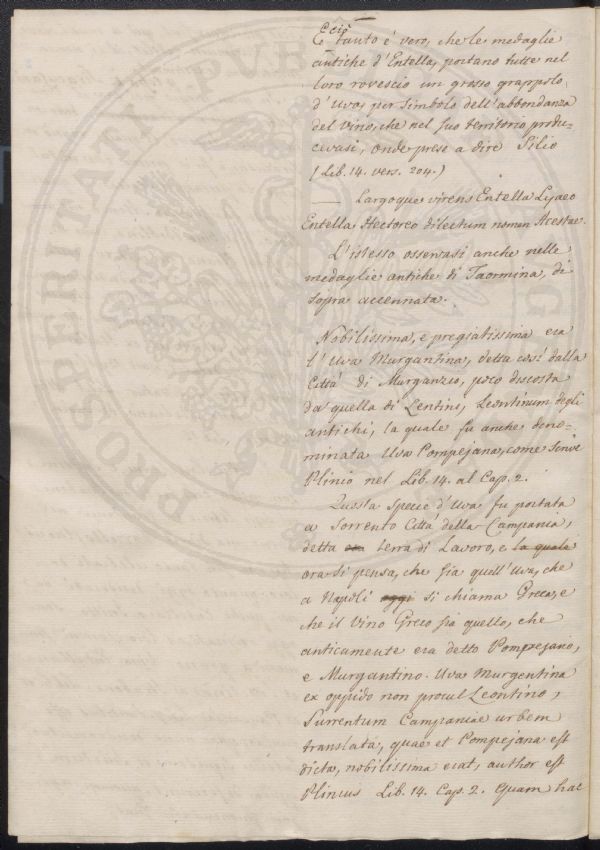 E ciò
tanto è vero, che le medaglie
antiche d'Entella, portano tutte nel
loro rovescio un grosso grappolo
d'Uva, per simbolo dell'abbondanza
del vino, che nel suo territorio produ=
cevasi, onde prese a dire Silio
(Lib. 14. vers. 204.)
Largoque virens Entella Lyaeo
Entella Hectoreo dilectum nomen Acestae.
L'istesso osservasi anche nelle
medaglie antiche di Taormina, di
sopra accennata.
Nobilissima, e pregiatissima era
l'Uva Murgantina, detta così dalla
Città di Murganzio, poco discosta
da quella di Lentini, Leontinum degli
antichi, la quale fu anche deno=
minata Uva Pompejana, come scrive
Plinio nel Lib. 14. al Cap. 2.
Questa spece d'Uva fu portata
a Sorrento Città della Campania,
detta terra di Lavoro, e la quale
ora si pensa, che sia quell'Uva, che
a Napoli oggi si chiama Greca, e
che il vino Greco sia quello, che
anticamente era detto Pompejano,
e Murgantino. Uva Murgentina
ex oppido non procul Leontino,
Surrentum Campaniae urbem
translata, quae et Pompejana est
dicta, nobilissima erat, author est
Plinius Lib. 14. Cap. 2. Quam hac
PROSPERITATI PUBLICAE